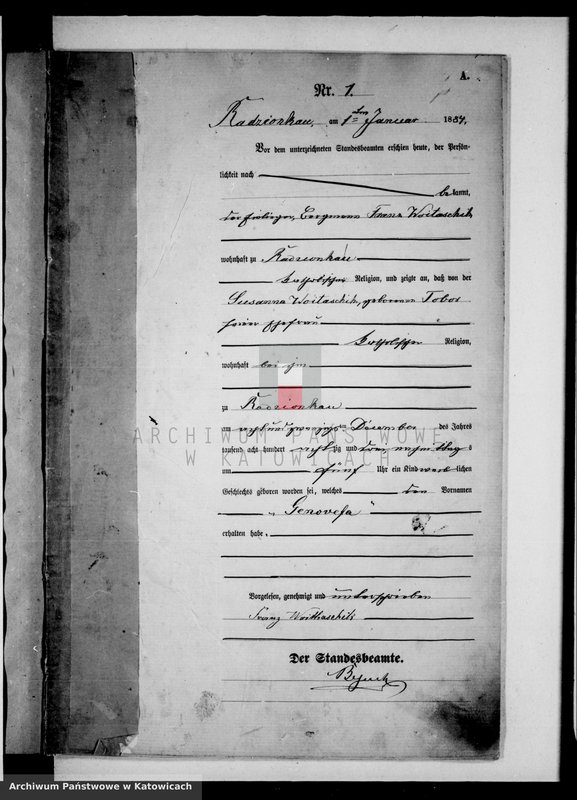 A.
Nr. 1.
Radzionkau, am 1ten Januar 1884.
Vor dem unterzeichneten Standesbeamten erschien heute, der Persön-
lichkeit nach
bekannt,
der Bergmann Franz Woitaschik
wohnhaft zu Radzionkau
katholischer Religion, und zeigte an, daß von der
Susanna Woitaschik, geborenen Tobor
seiner Ehefrau
katholischer Religion,
wohnhaft bei ihm
zu Radzionkau
am acht und zwanzigsten December des Jahres
tausend acht hundert achtzig und drei nachmittags
um fünf Uhr ein Kind weiblichen
Geschlechts geboren worden sei, welches den Vornamen
„Genovefa"
erhalten habe.
Vorgelesen, genehmigt und unterschrieben
Franz
Der Standesbeamte.
ARCHIWUM PAŃSTWOWE
W KATOWICACH
Archiwum Państwowe w Katowicach